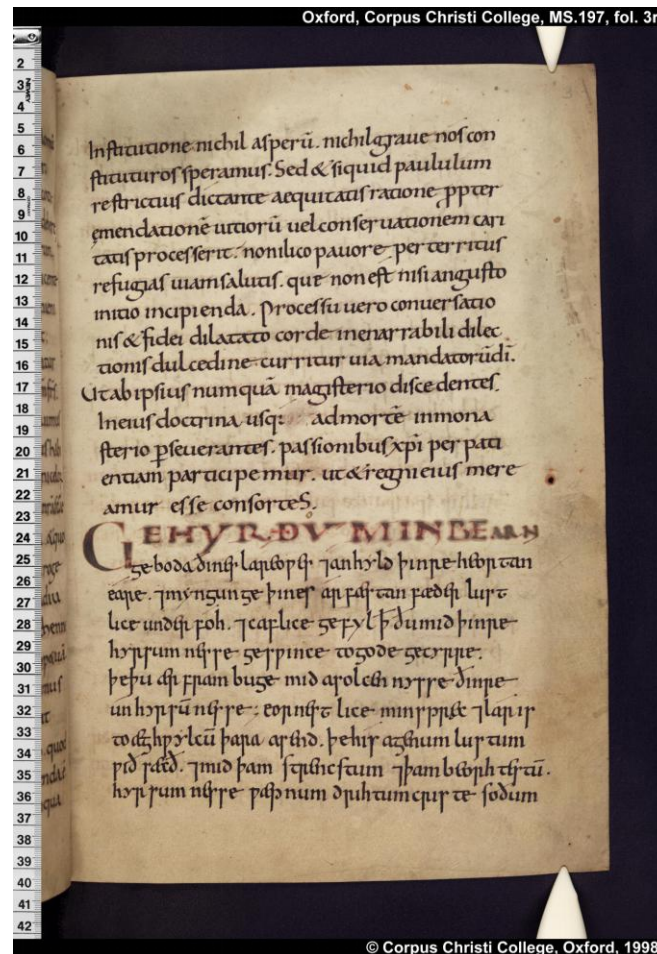 Oxford, Corpus Christi College, MS.197, fol. 3r
Institutione nichil asperū. nichil graue nos con
stituturos speramus. Sed & siquid paululum
restrictius dictante aequitatis ratione ꝓpter
emendationē uitiorū uel conseruationem cari
tatis processerit. non ilico pauore perterritus
refugias uiam salutis. que non est nisi angusto
initio incipienda. Processu uero conuersatio
nis & fidei dilatato corde inenarrabili dilec
tionis dulcedine curritur uia mandatorū di̅.
Ut ab ipsius numquā magisterio discedentes.
In eius doctrina usq: ad mortē in mona
sterio ꝑseuerantes. passionibus xp̅i per pati
entiam participemur. ut & regni eius mere
amur esse consortes.
GEHYR ÐV MIN BEARN
geboda ðines lareowes ⁊ anhyld þinre heortan
eare. ⁊ myngunge þines arfæstan fæder lust
lice underfoh. ⁊ caflice gefyl ꝥ ðu mid þinre
hyrsumnesse geswince to gode gecyrre.
þe þu ær fram buge mid asolcennysse ðinre
unhyrsūnesse; eornestlice min spræc ⁊ lar is
to æghwylcū þara asend. þe his agenum lustum
wið sæcð. ⁊ mid þam strencstum ⁊ þam beorhtestū.
hyrsumnesse wæpnum drihtum criste soðum
© Corpus Christi College, Oxford, 1998